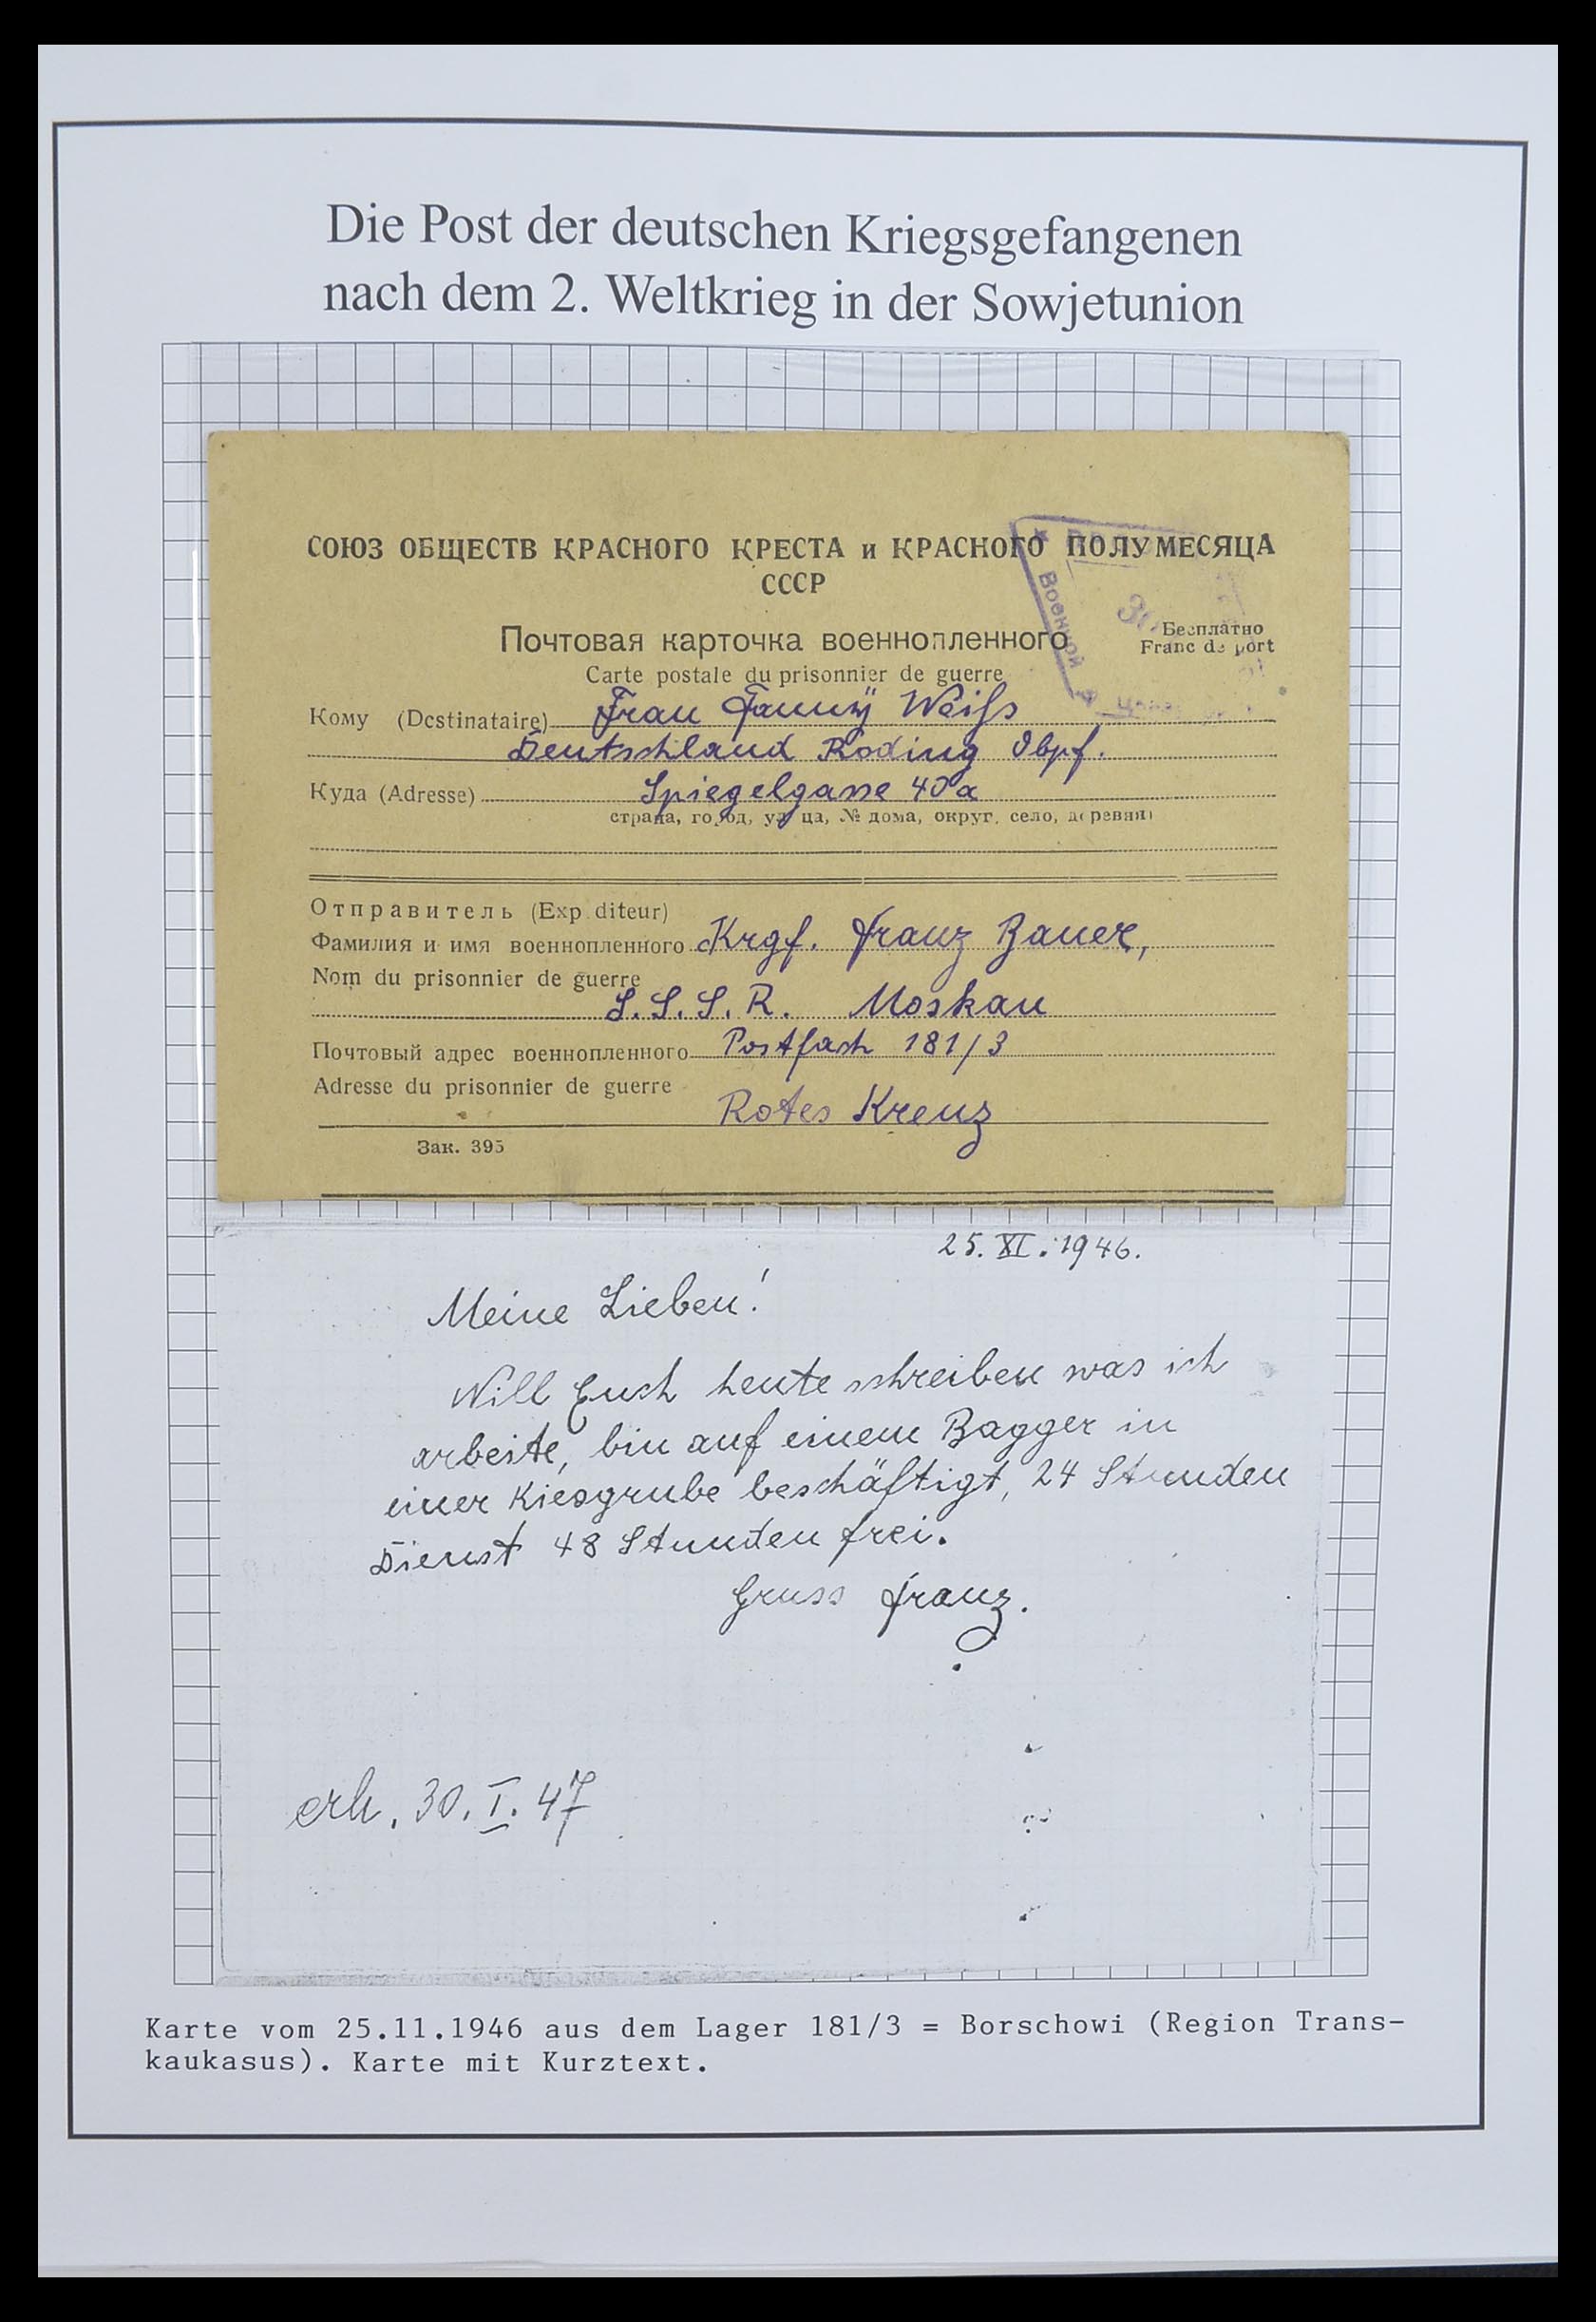 Die Post der deutschen Kriegsgefangenen
nach dem 2. Weltkrieg in der Sowjetunion
СОЮЗ ОБЩЕСТВ КРАСНОГО КРЕСТА и КРАСНОГО ПОЛУМЕСЯЦА
СССР
Военной
30
Почтовая карточка военнопленного
Бесплатно
Franc de port
Carte postale du prisonnier de guerre
Кому (Destinataire) Frau Fanny Weiss
Deutschland Roding Obpf.
Куда (Adresse) Spiegelgasse 40a
страна, город, улица, № дома, округ, село, деревня)
Отправитель (Exp diteur)
Фамилия и имя военнопленного Krgf. Franz Bauer,
Nom du prisonnier de guerre
S.S.S.R. Moskau
Почтовый адрес военнопленного Postfach 181/3
Adresse du prisonnier de guerre
Rotes Kreuz
Зак. 395
25. XI. 1946.
Meine Lieben!
Will Euch heute schreiben was ich
arbeite, bin auf einem Bagger in
einer Kiesgrube beschäftigt, 24 Stunden
Dienst 48 Stunden frei.
Gruss Franz.
erh. 30. I. 47
Karte vom 25.11.1946 aus dem Lager 181/3 = Borschowi (Region Trans-
kaukasus). Karte mit Kurztext.